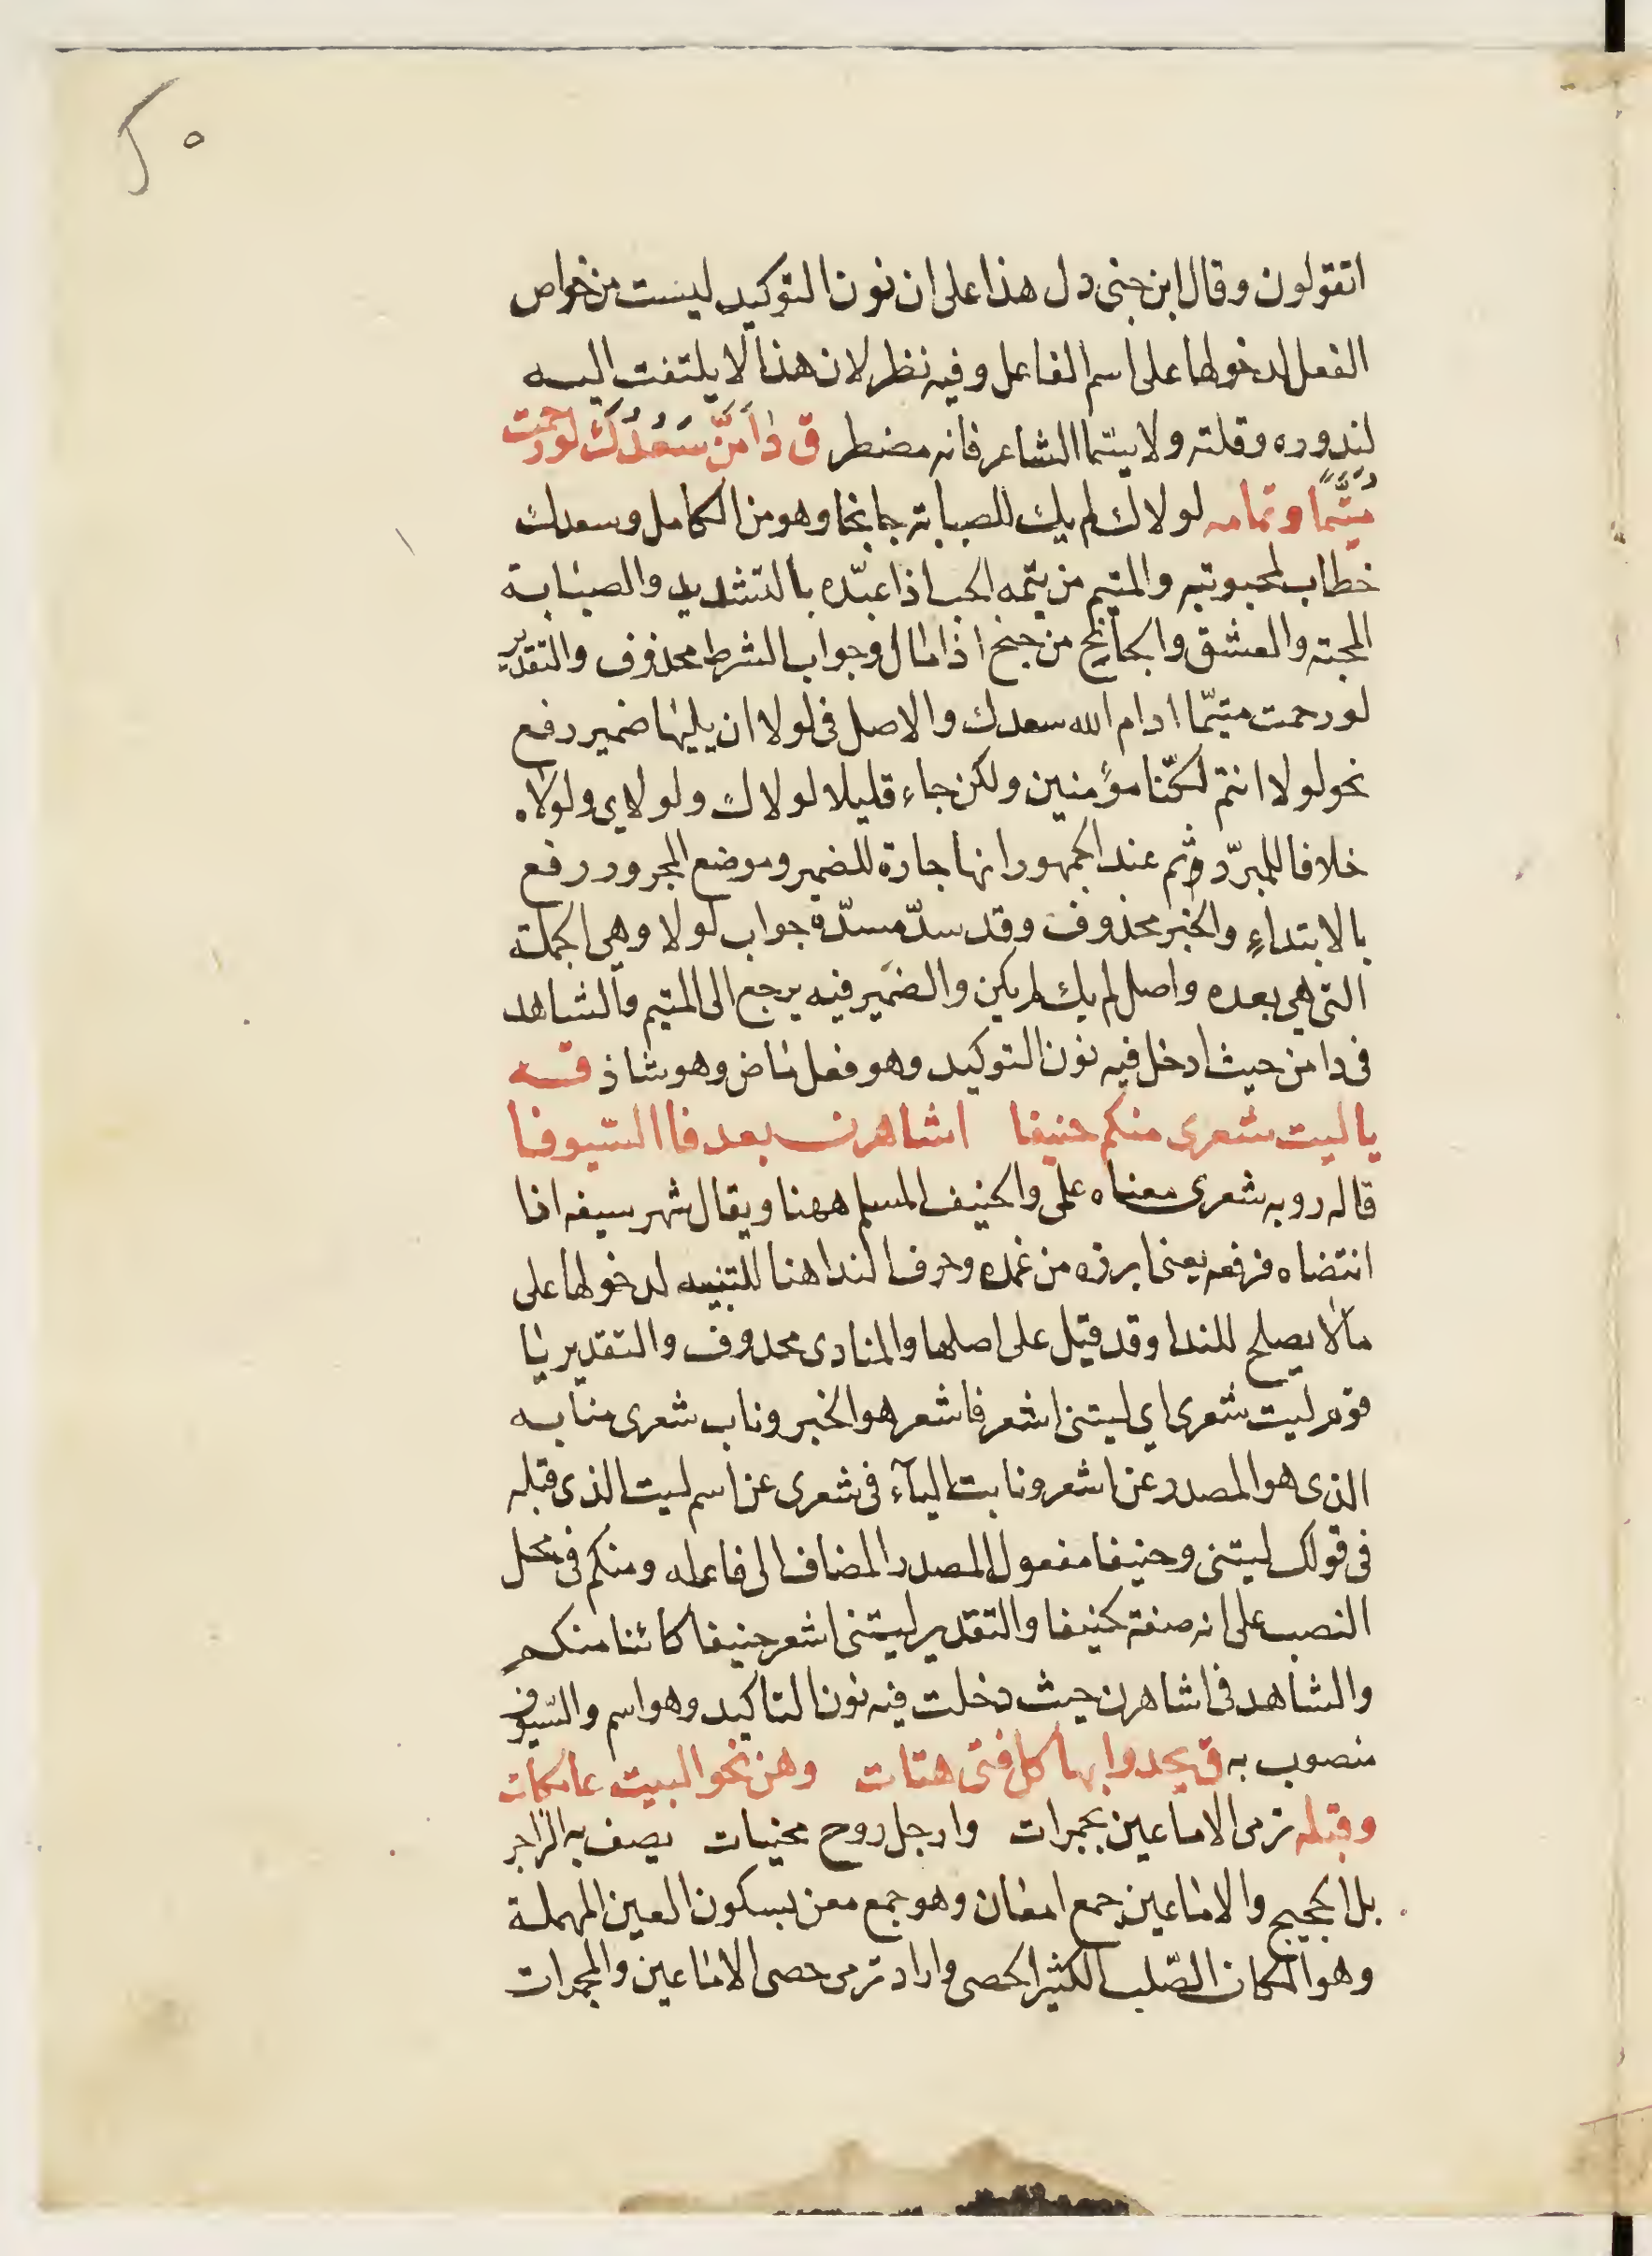 ٢٥
اتقولون وقال ابن جنى دل هذا على ان نون التوكيد ليست من خواص
الفعل لدخولها على اسم الفاعل وفيه نظر لان هذا لا يلتفت اليه
لندوره وقلته ولا سيما الشاعر فانه مضطر ق دامَنَّ سَعْدُكَ لو رحمت
مُتَيَّمًا وتمامه لولاك لم يك للصبابة جانحا وهو من الكامل وسعدك
خطاب لمحبوبته والمتيم من تيمه الحب اذا عبّده بالتشديد والصبابة
المحبة والعشق والجانح من جنح اذا مال وجواب الشرط محذوف والتقدير
لو رحمت متيّما ادام الله سعدك والاصل فى لولا ان يليها ضمير رفع
نحو لولا انتم لكنّا مؤمنين ولكن جاء قليلا لولاك ولولاى ولولاه
خلافا للمبرّد وثم عند الجمهور انها جارة للضمير وموضع المجرور رفع
بالابتداءِ والخبر محذوف وقد سدّ مسدّه جواب لولا وهى الجملة
التى هى بعده واصل لم يك لم يكن والضمير فيه يرجع الى المتيم والشاهد
فى دامن حيث ادخل فيه نون التوكيد وهو فعل ماض وهو شاذ قه
يا ليت شعرى منكم حنيفا اشاهرن بعدفا السّيوفا
قاله روبه شعرى معناه علمى والحنيف المسلم ههنا ويقال شهر سيفه اذا
انتضاه فرفعه يعنى ابرزه من غمده وحرف الندا هنا للتنبيه لدخولها على
ما لا يصلح للندا وقد قيل على اصلها والمنادى محذوف والتقدير يا
قوم ليت شعرى اي ليتنى اشعر فاشعر هو الخبر وناب شعرى منابه
الذى هو المصدر عن اشعر ونابت اليآء فى شعرى عن اسم ليت الذى قبله
فى قولك ليتنى وحنيفا مفعول المصدر المضاف الى فاعله ومنكم فى محل
النصب على انه صفة لحنيفا والتقدير ليتنى اشعر حنيفا كائنا منكم
والشاهد فى اشاهرن حيث دخلت فيه نون التاكيد وهو اسم والسّيوف
منصوب به ق يحدوا بها كل فتى هتات وهن نحو البيت عامدات
وقبله ترمى الاماعين بمجمرات وارجل روح محنبات يصف به الراجز
بل الحجيج والاماعين جمع امعان وهو جمع معن بسكون العين المهملة
وهو المكان الصّلب الكثير الحصى واراد ترمى حصى الاماعين والمجمرات